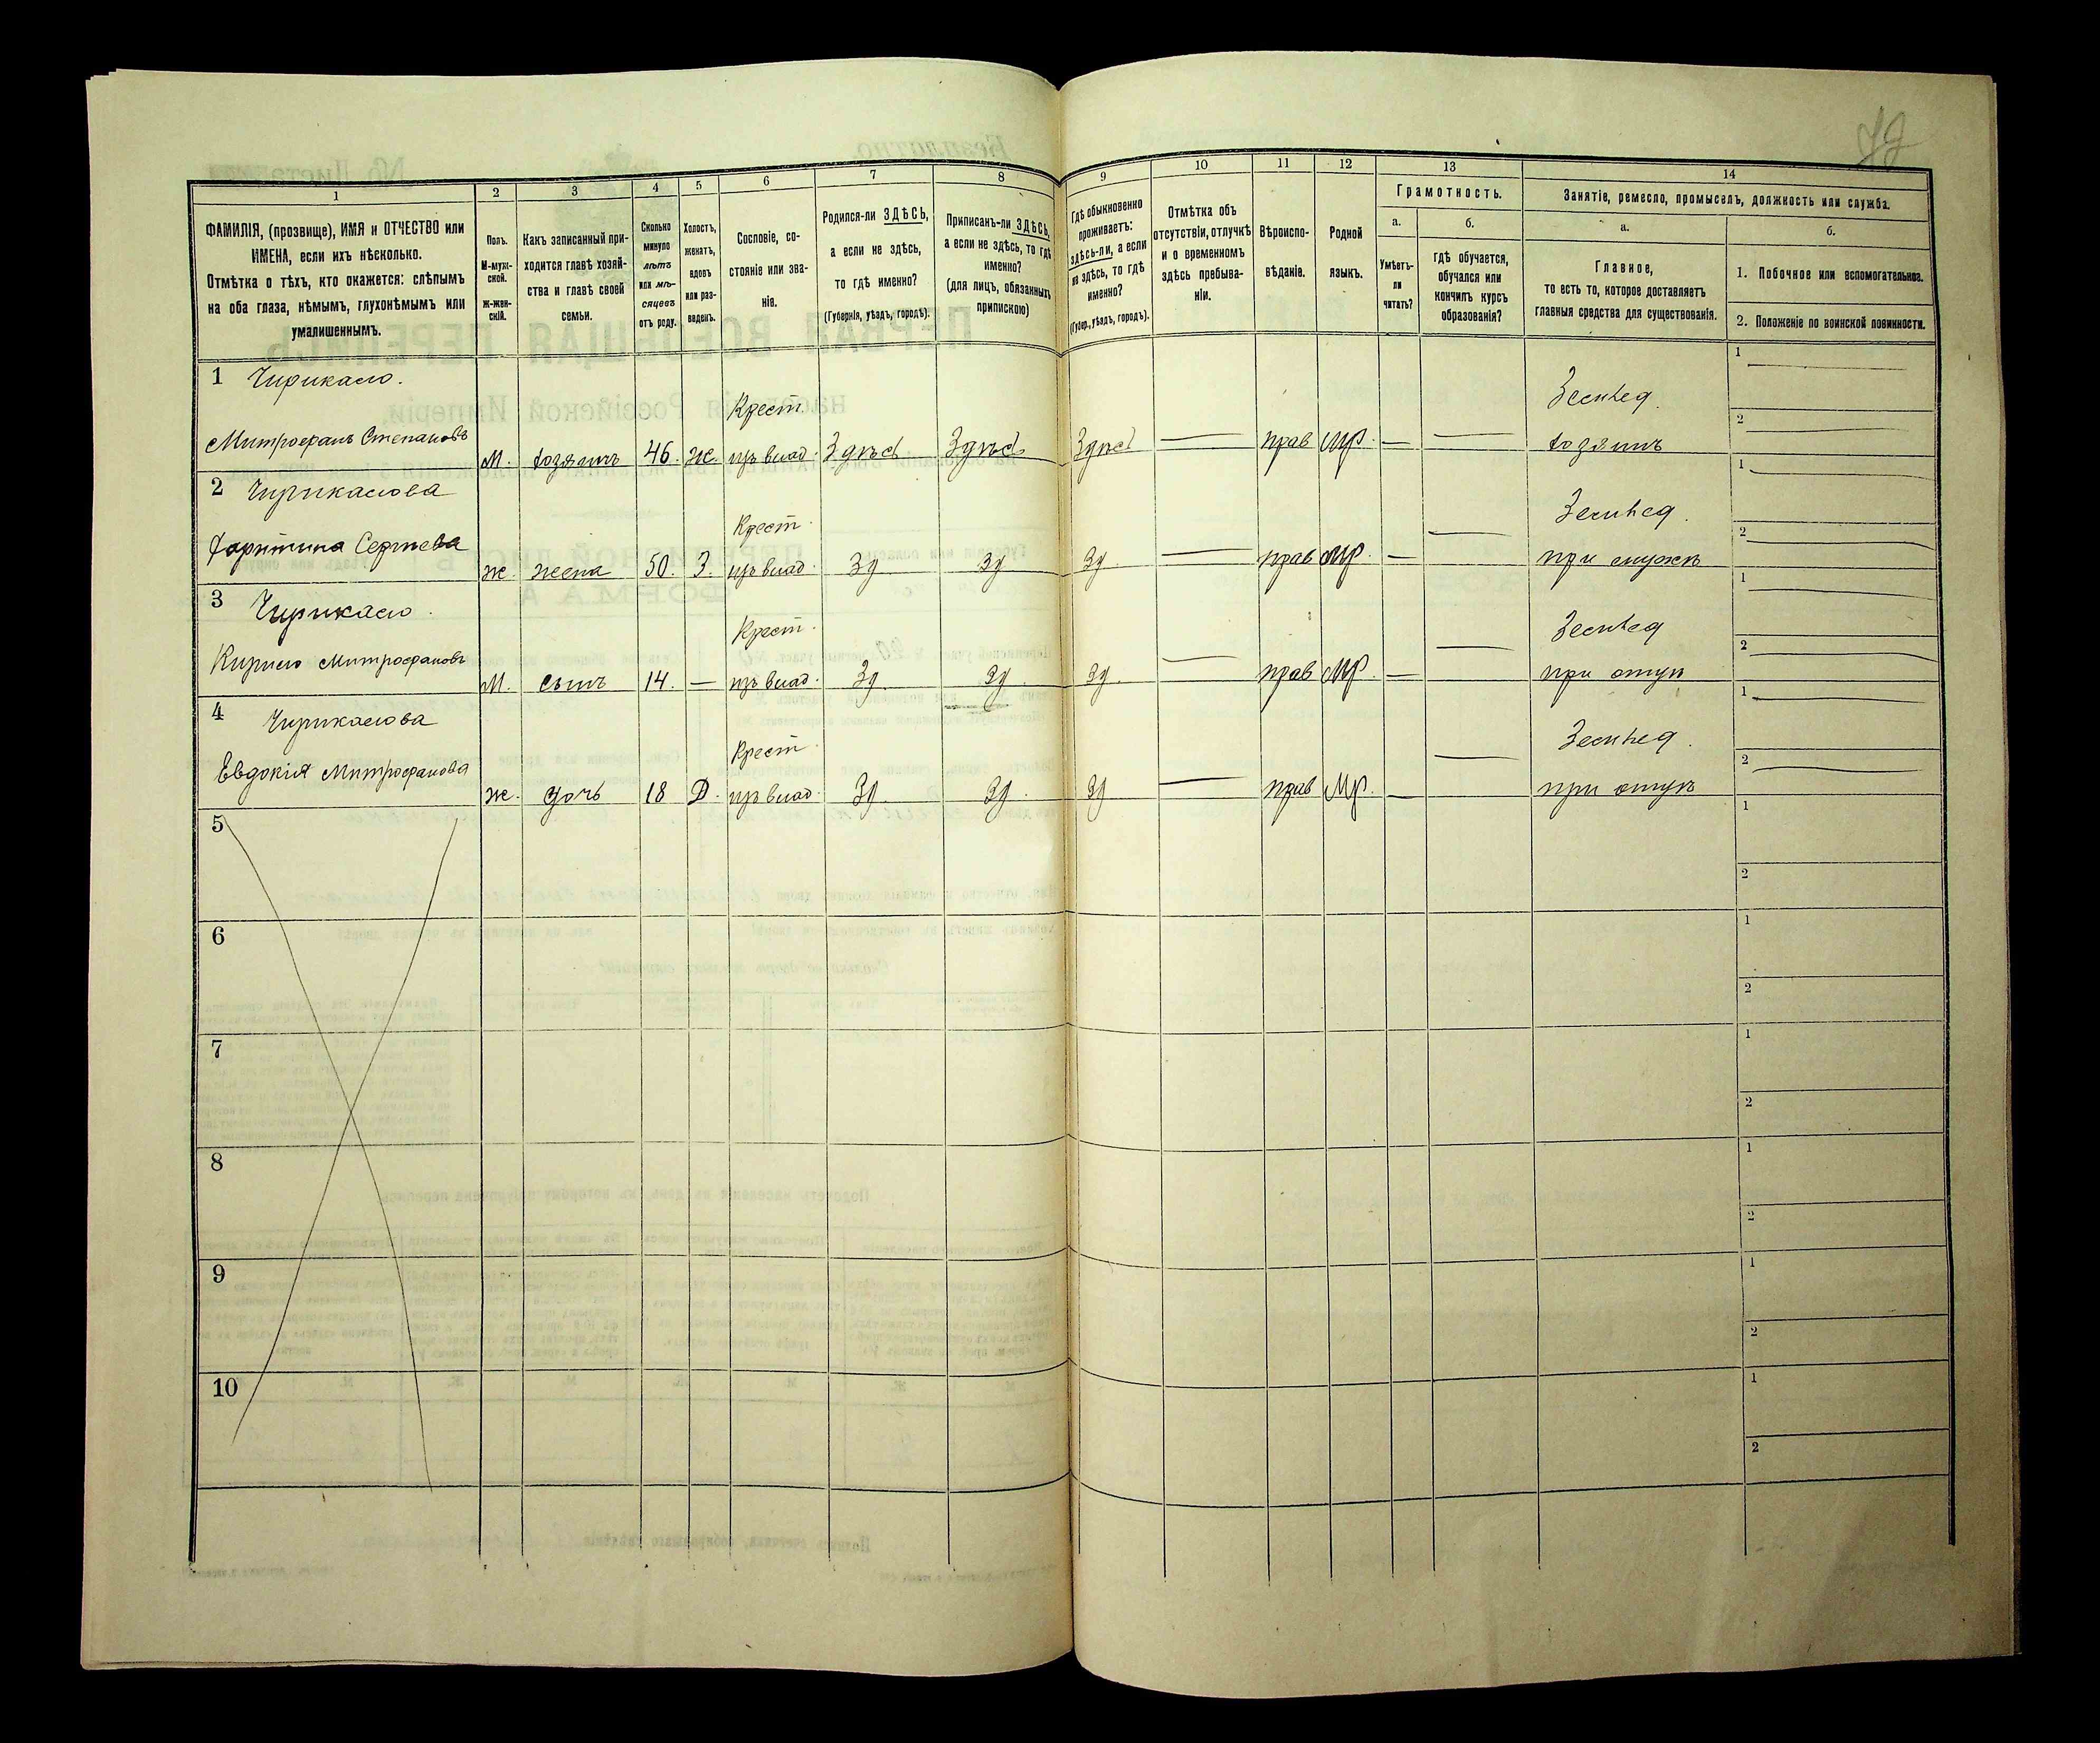 1 2 3 4 5 6 7 8 9 10 11 12 13 14
ФАМИЛІЯ, (прозвище), ИМЯ и ОТЧЕСТВО или
ИМЕНА, если ихъ нѣсколько.
Отмѣтка о тѣхъ, кто окажется: слѣпымъ
на оба глаза, нѣмымъ, глухонѣмымъ или
умалишеннымъ.
Полъ.
М-муж-
ской.
Ж-жен-
скій.
Какъ записанный при-
ходится главѣ хозяй-
ства и главѣ своей
семьи.
Сколько
минуло
лѣтъ
или мѣ-
сяцевъ
отъ роду.
Холостъ,
женатъ,
вдовъ
или раз-
веденъ.
Сословіе, со-
стояніе или зва-
ніе.
Родился-ли ЗДѢСЬ,
а если не здѣсь,
то гдѣ именно?
(Губернія, уѣздъ, городъ).
Приписанъ-ли ЗДѢСЬ,
а если не здѣсь, то гдѣ
именно?
(для лицъ, обязанныхъ
припискою)
Гдѣ обыкновенно
проживаетъ:
здѣсь-ли, а если
не здѣсь, то гдѣ
именно?
(Губер., уѣздъ, городъ).
Отмѣтка объ
отсутствіи, отлучкѣ
и о временномъ
здѣсь пребыва-
ніи.
Вѣроиспо-
вѣданіе.
Родной
языкъ.
Грамотность.
а.
Умѣетъ-
ли
читать?
б.
гдѣ обучается,
обучался или
кончилъ курсъ
образованія?
Занятіе, ремесло, промыселъ, должность или служба.
а.
Главное,
то есть то, которое доставляетъ
главныя средства для существованія.
б.
1. Побочное или вспомогательное.
2. Положеніе по воинской повинности.
1
Митрофанъ Степановъ
М. хозяинъ 46. Ж. Крест. изъ влад. Здѣсь Здѣсь Здѣсь — прав Мр. — —
хозяинъ
1 —
2 —
2
Сергѣева
Ж. жена 50. З. Крест. изъ влад. Зд Зд Зд — прав Мр. — —
при мужѣ
1 —
2 —
3
Кирило Митрофановъ
М. сынъ 14. — Крест. изъ влад. Зд. Зд. Зд. — прав Мр. — —
при отцѣ
1 —
2 —
4
Евдокія Митрофанова
Ж. дочь 18 Д. Крест. изъ влад. Зд. Зд. Зд — прав Мр. — —
при отцѣ
1 —
2 —
5 1
2
6 1
2
7 1
2
8 1
2
9 1
2
10 1
2